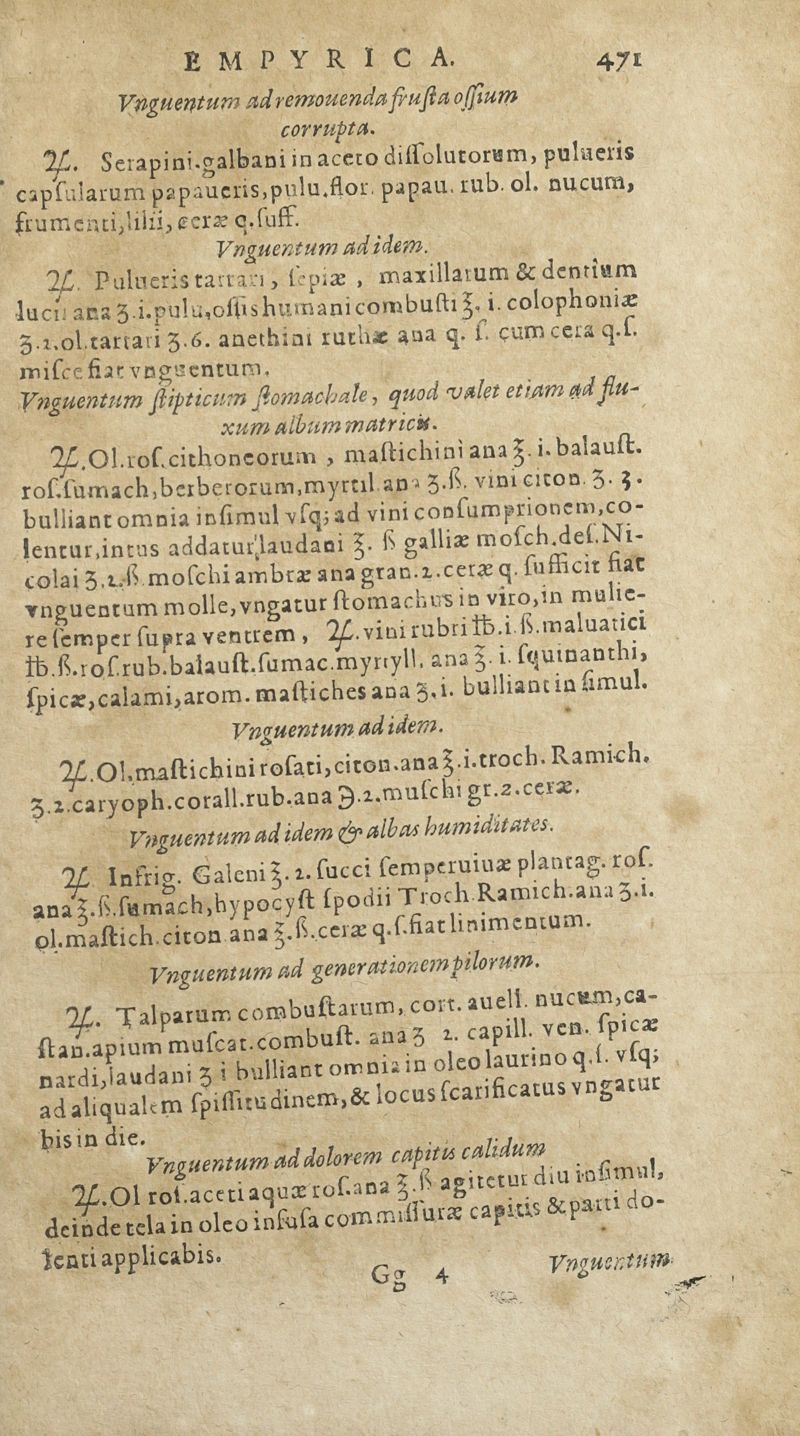 EMPYRICA. 471
Vnguentum ad remouenda fruſta oſſium
corrupta.
℞. Serapini.galbani in aceto diſſolutorum, pulueris
capſularum papaueris,pulu.flor. papau. rub. ol. nucum,
frumenti,lilii, ceræ q.ſuff.
Vnguentum ad idem.
℞. Pulueris tartari, ſepiæ , maxillarum & dentium
lucii ana ʒ.i.pulu,oſſis humani combuſti ℥. i. colophoniæ
ʒ.2.ol.tartari ʒ.6. anethini ruthæ ana q. ſ. cum cera q.ſ.
miſce fiat vnguentum.
Vnguentum ſtipticum ſtomachale, quod valet etiam ad flu-
xum album matricis.
℞.Ol.roſ.cithoneorum , maſtichini ana ℥. i. balauſt.
roſ.ſumach,berberorum,myrtil.ana ʒ.ß. vini citon. ʒ. 3.
bulliant omnia inſimul vſq; ad vini conſumptionem,co-
lentur,intus addatur laudani ℥. ß galliæ moſch.deſ.Ni-
colai ʒ.2.ß.moſchi ambræ ana gran.2.ceræ q. ſufficit fiat
vnguentum molle,vngatur ſtomachus in viro,in mulie-
re ſemper ſupra ventrem , ℞. vini rubri ℔.i.ß.maluatici
℔.ß.roſ.rub.balauſt.ſumac.myrtyll. ana ℥. i. ſquinanthi,
ſpicæ,calami,arom. maſtiches ana ʒ.i. bulliant in ſimul.
Vnguentum ad idem.
℞.Ol.maſtichini roſati,citon.ana ℥.i.troch. Ramich.
ʒ.2.caryoph.corall.rub.ana ℈.2.muſchi gr.2.ceræ.
Vnguentum ad idem & albas humiditates.
℞ Infrig. Galeni ℥.2. ſucci ſemperuiuæ plantag. roſ.
ana ℥.ß.ſumach,hypocyſt ſpodii Troch.Ramich.ana ʒ.i.
ol.maſtich.citon ana ℥.ß.ceræ q.ſ.fiat linimentum.
Vnguentum ad generationem pilorum.
℞. Talparum combuſtarum, cort. auell. nucum,ca-
ſtan.apium muſcat.combuſt. ana ʒ 2. capill. ven. ſpicæ
nardi,laudani ʒ i bulliant omnia in oleo laurino q.ſ. vſq;
ad aliqualem ſpiſſitudinem,& locus ſcarificatus vngatur
bis in die.
Vnguentum ad dolorem capitis calidum
℞.Ol roſ.aceti aquæ roſ.ana ℥.ß agitetur diu inſimul,
deinde tela in oleo infuſa commiſſuræ capitis & parti do-
lenti applicabis.
Gg 4 Vnguentum